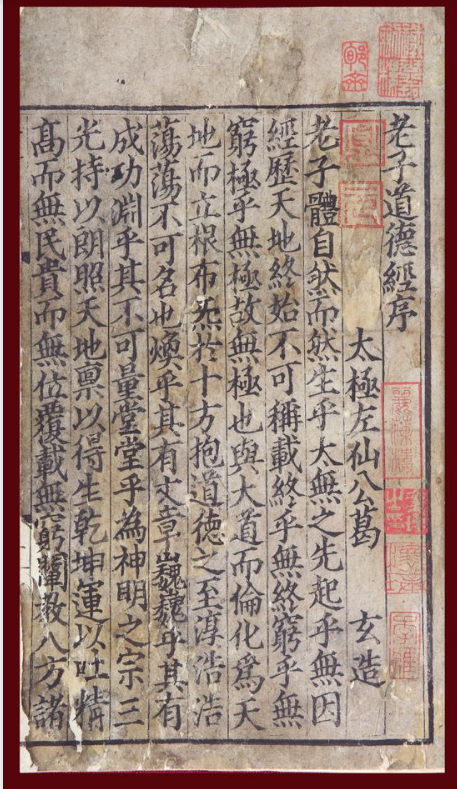 老子道德經序
太極左仙公葛　玄造
老子體自然而然生乎大無之先起乎無因
經歷天地終始不可稱載終乎無終窮乎無
窮極乎無極故無極也與大道而倫化爲天
地而立根布炁於十方抱道德之至淳浩浩
蕩蕩不可名也煥乎其有文章巍巍乎其有
成功淵乎其不可量堂堂乎為神明之宗三
光持以朗照天地禀以得生乾坤運以吐精
高而無民貴而無位覆載無窮闡教八方諸